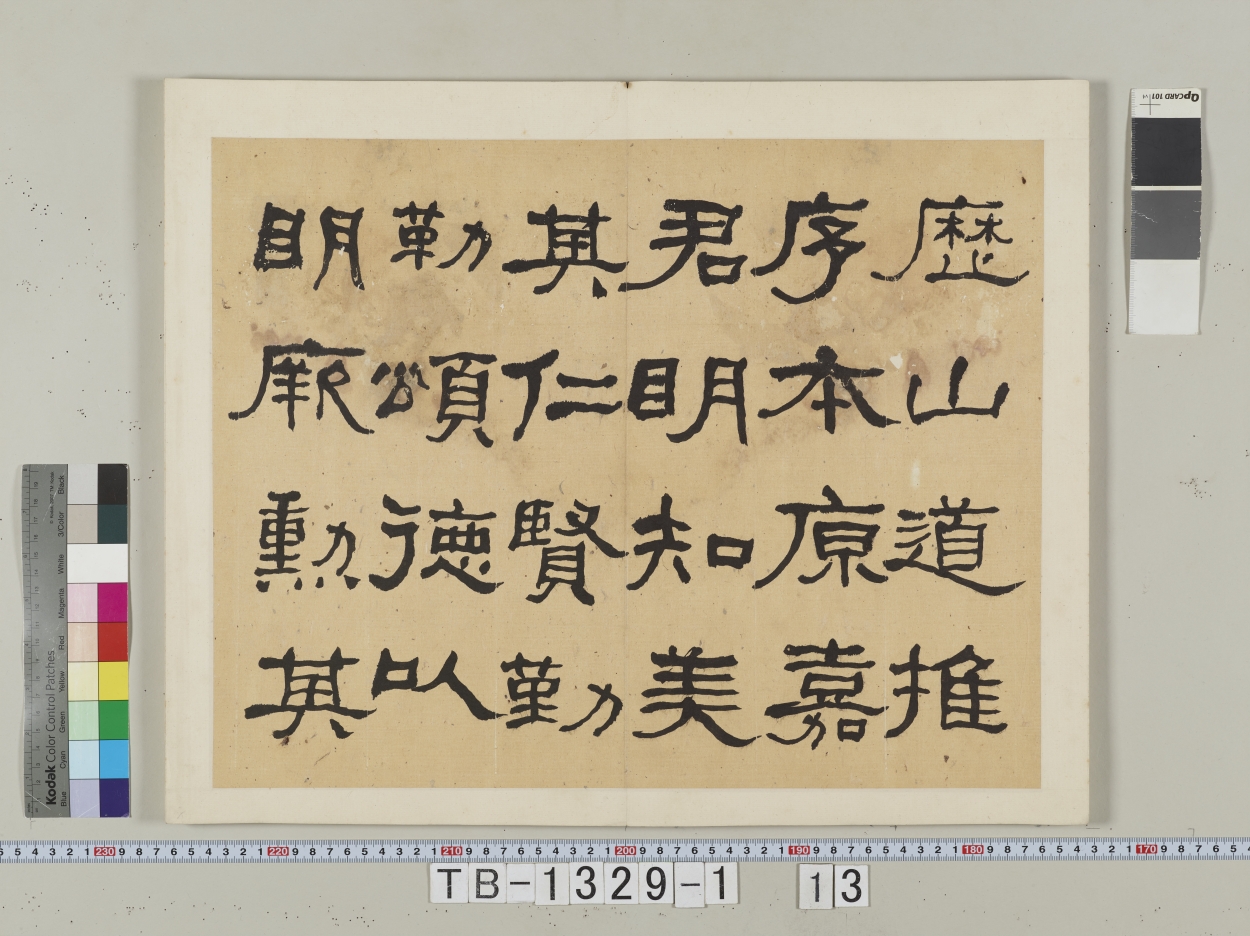 歷山道推
序本原嘉
君明知美
其仁賢勤
勒頌德以
明厥勳其
QpCARD 101
Kodak Color Control Patches
Black
3/Color
White
Magenta
Red
Yellow
Green
Cyan
Blue
230 220 210 200 190 180 170
TB-1329-1 13